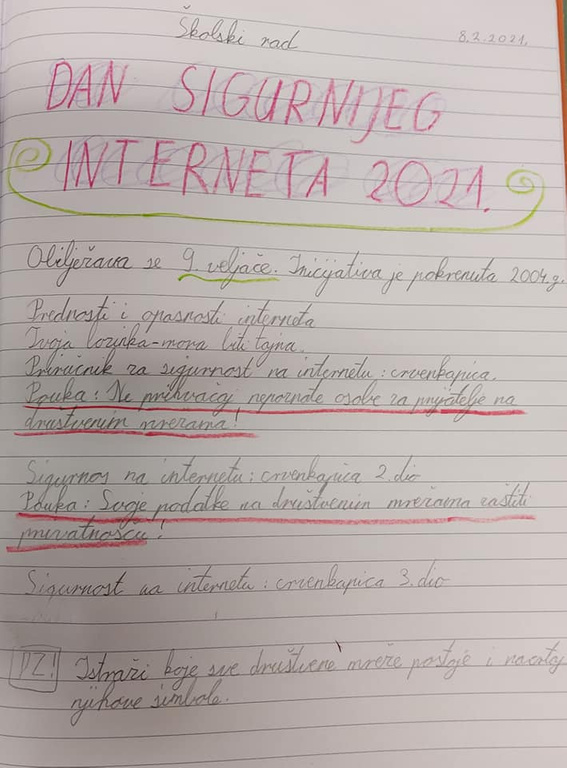 Školski rad
8.2.2021.
DAN SIGURNIJEG
INTERNETA 2021.
Obilježava se 9. veljače. Inicijativa je pokrenuta 2004.g.
Prednosti i opasnosti interneta
Tvoja lozinka-mora biti tajna.
Priručnik za sigurnost na internetu : crvenkapica.
Pouka : Ne prihvaćaj nepoznate osobe za prijatelje na
društvenim mrežama!
Sigurnos na internetu : crvenkapica 2. dio
Pouka : Svoje podatke na društvenim mrežama zaštiti
privatnošću!
Sigurnost na internetu : crvenkapica 3. dio
DZ! Istraži koje sve društvene mreže postoje i nacrtaj
njihove simbole.